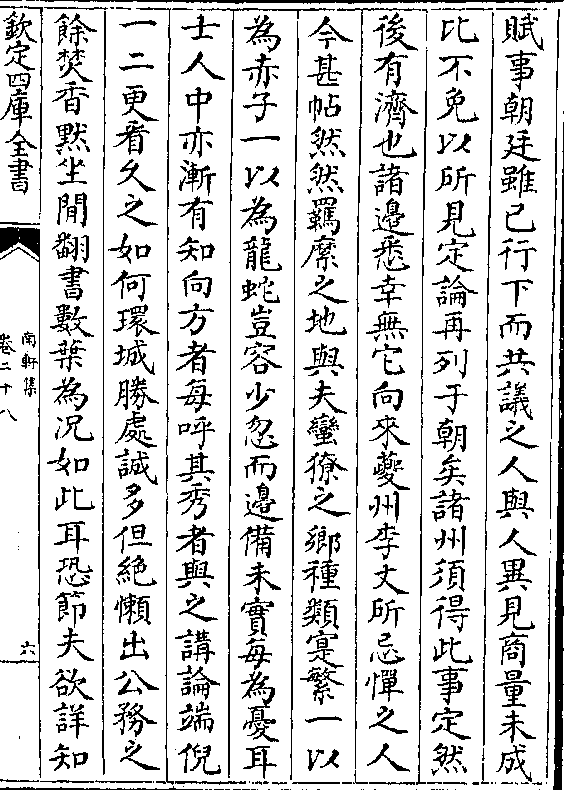 賦事朝廷雖已行下而共議之人與人異見商量未成
比不免以所見定論再列于朝矣諸州須得此事定然
後有濟也諸邊悉幸無它向來夔州李丈所忌憚之人
今甚帖然然羈縻之地與夫蠻獠之鄉種類寔繁一以
為赤子一以為龍蛇豈容少忽而邊備未實每為憂耳
士人中亦漸有知向方者每呼其秀者與之講論端倪
一二更看久之如何環城勝處誠多但絶懶出公務之
餘焚香黙坐間翻書數葉為况如此耳恐節夫欲詳知
欽定四庫全書
南軒集
卷二十八
六